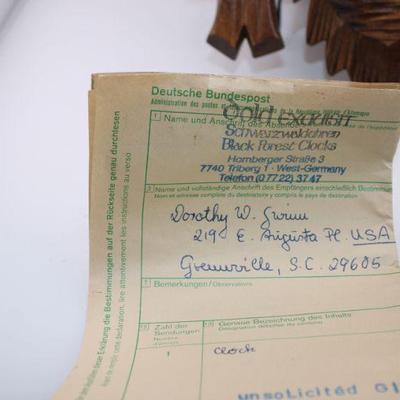 Deutsche Bundespost
Administration des postes
1 Name und Anschrift des Absenders
Gold Exquisit
Schwarzwalduhren
Black Forest Clocks
Hornberger Straße 3
7740 Triberg 1 · West-Germany
Telefon (07722) 3747
3 Name und vollständige Anschrift des Empfängers einschließlich Bestimmungs
Nom et adresse complète du destinataire y compris le pays de destination
Dorothy W. Grimm
219 E. Augusta Pl. USA
Greenville, S.C. 29605
Bemerkungen / Observations
Zahl der Sendungen
Genaue Bezeichnung des Inhalts
Désignation détaillée du contenu
1
clock
unsolicited
dieser Erklärung die Bestimmungen auf der Rückseite genau durchlesen
cette déclaration, lire attentivement les instructions au verso